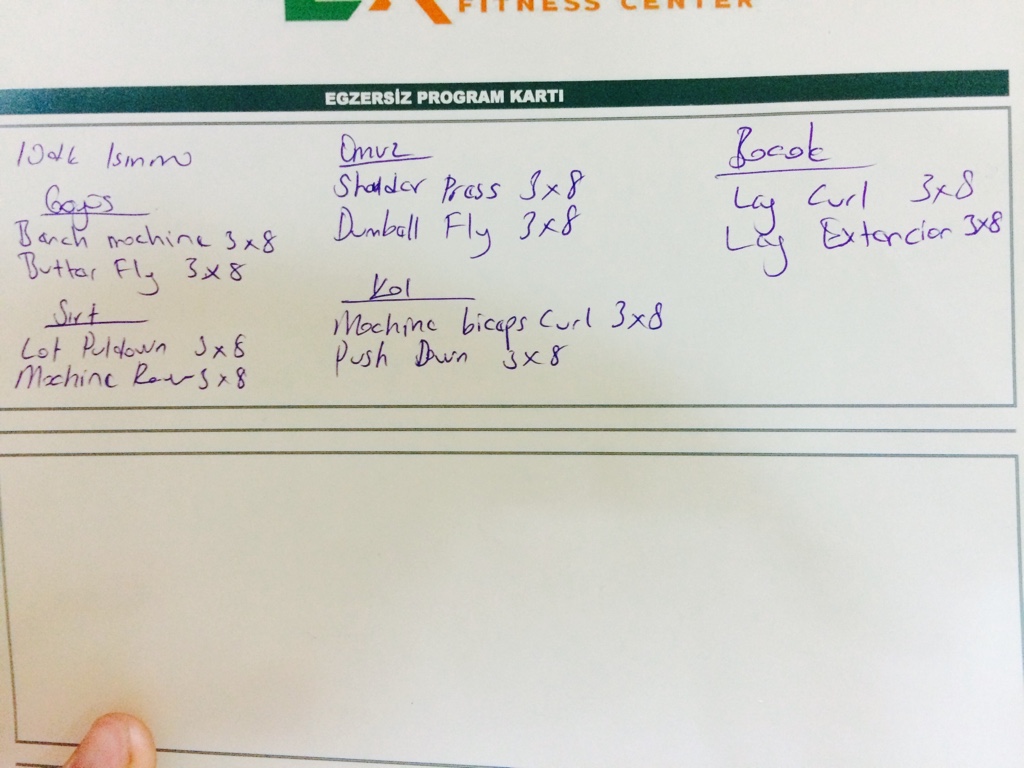 FITNESS CENTER
EGZERSİZ PROGRAM KARTI
10dk Isınma
Göğüs
Bench machine 3x8
Butter Fly 3x8
Sırt
Lat Puldown 3x8
Machine Row 3x8
Omuz
Sholder Press 3x8
Dumball Fly 3x8
Kol
Machine biceps Curl 3x8
Push Down 3x8
Bacak
Leg Curl 3x8
Leg Extencion 3x8